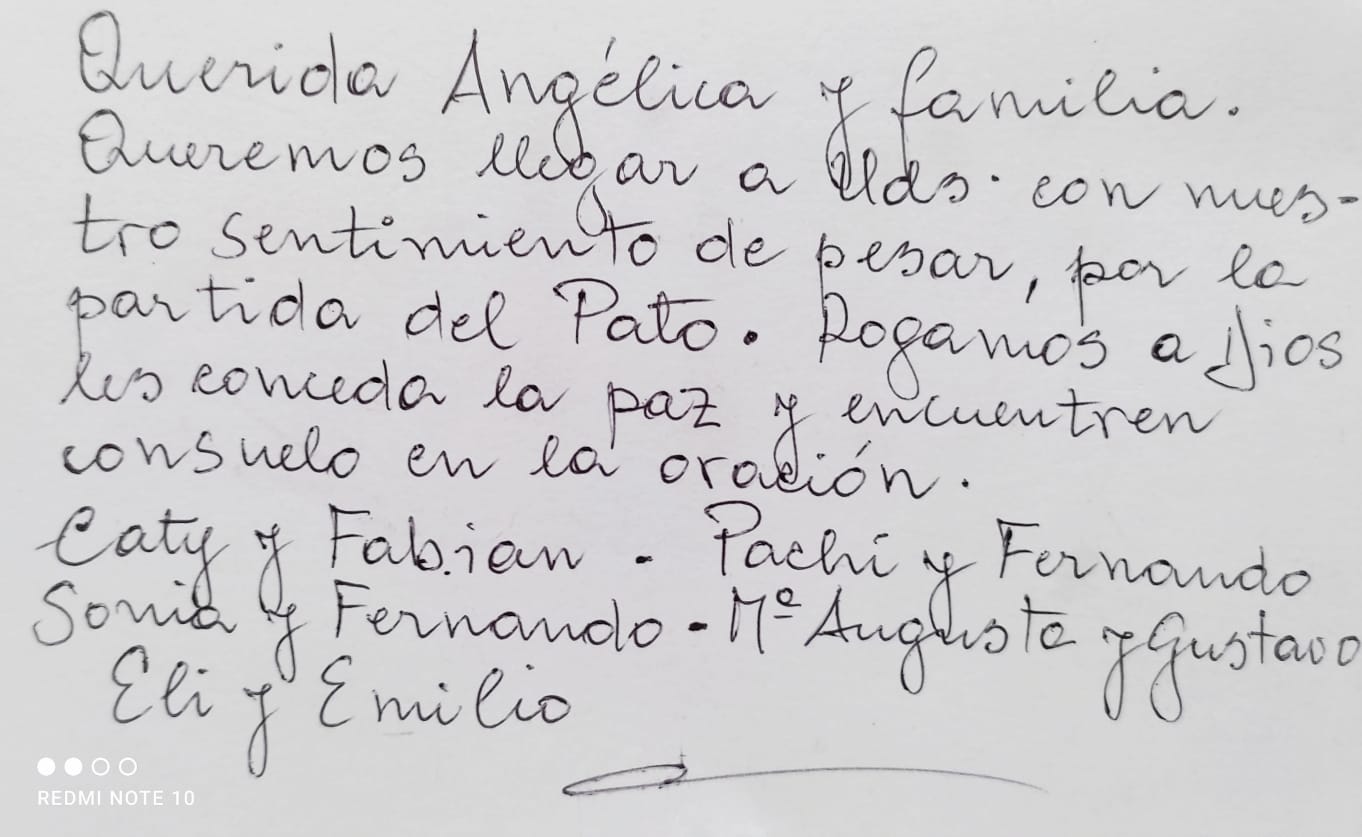 Querida Angélica y familia.
Queremos llegar a Uds. con nues-
tro sentimiento de pesar, por la
partida del Pato. Rogamos a Dios
les conceda la paz y encuentren
consuelo en la oración.
Caty y Fabian - Pachi y Fernando
Sonia y Fernando - Mª Augusta y Gustavo
Eli y Emilio
REDMI NOTE 10